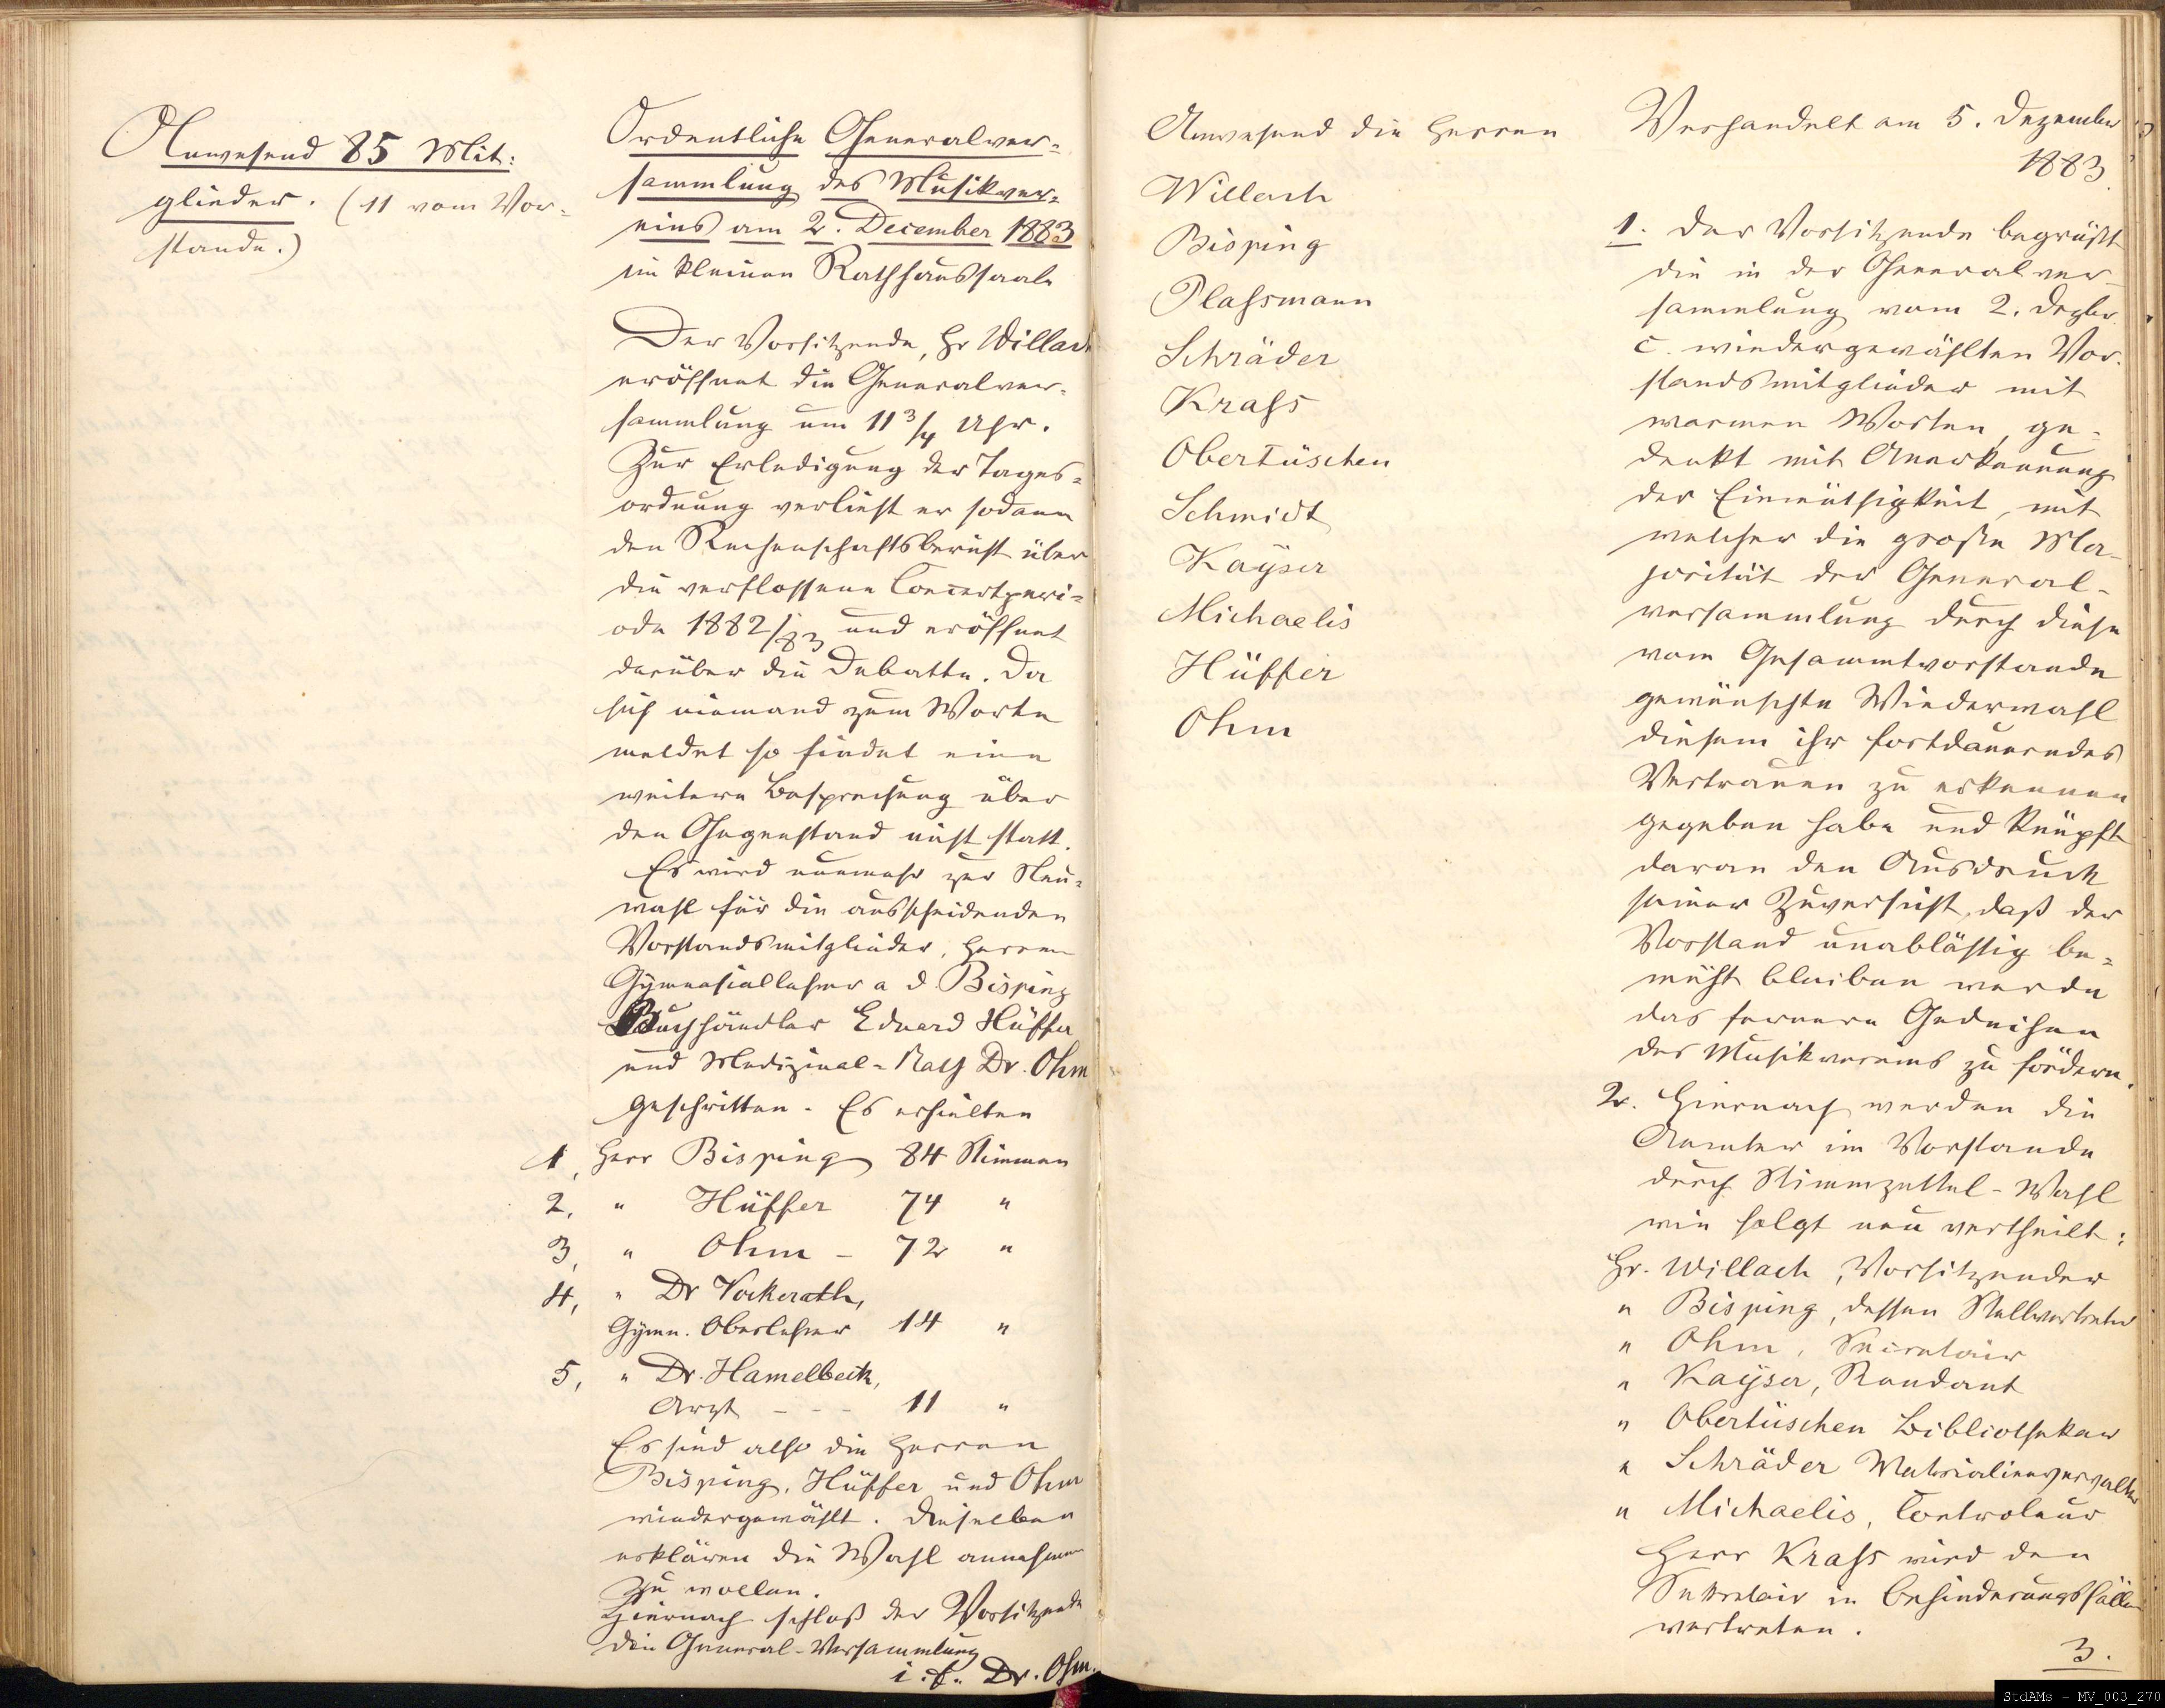 Anwesend 85 Mit:
glieder. (11 vom Vor-
stande.)
Ordentliche Generalver-
sammlung des Musikver-
eins am 2. December 1883
im kleinen Rathhaussaale
Der Vorsitzende, Hr Willach
eröffnet die Generalver-
sammlung um 11 3/4 Uhr.
Zur Erledigung der Tages-
ordnung verliest er sodann
den Rechenschaftsbericht über
die verflossene Concertperi-
ode 1882/83 und eröffnet
darüber die Debatte. Da
sich niemand zum Worte
meldet so findet eine
weitere Besprechung über
den Gegenstand nicht statt.
Es wird nunmehr zur Neu-
wahl für die ausscheidenden
Vorstandsmitglieder, Herren
Gymnasiallehrer a d. Bisping
Buchhändler Eduard Hüffer
und Medizinal-Rath Dr. Ohm
geschritten. Es erhielten
1, Herr Bisping 84 Stimmen
2, " Hüffer 74 "
3, " Ohm - 72 "
4, " Dr Vockerath,
Gymn. Oberlehrer 14 "
5, " Dr. Hamelbeck,
Arzt - - - 11 "
Es sind also die Herren
Bisping, Hüffer und Ohm
wiedergewählt. Dieselben
erklären die Wahl annehmen
zu wollen.
Hiernach schloß der Vorsitzende
die General-Versammlung
i. f. Dr. Ohm.
Anwesend die Herren
Willach
Bisping
Plassmann
Schräder
Krass
Obertüschen
Schmidt
Kayser
Michaelis
Hüffer
Ohm
Verhandelt am 5. Dezember
1883.
1. Der Vorsitzende begrüßt
die in der Generalver-
sammlung vom 2. Dezbr.
c. wiedergewählten Vor-
standsmitglieder mit
warmen Worten, ge-
denkt mit Anerkennung
der Einmüthigkeit, mit
welcher die große Ma-
jorität der General-
versammlung durch diese
vom Gesammtvorstande
gewünschte Wiederwahl
diesem ihr fortdauerndes
Vertrauen zu erkennen
gegeben habe und knüpft
daran den Ausdruck
seiner Zuversicht, daß der
Vorstand unablässig be-
müht bleiben werde
das fernere Gedeihen
des Musikvereins zu fördern.
2. Hiernach werden die
Aemter im Vorstande
durch Stimmzettel-Wahl
wie folgt neu vertheilt:
Hr. Willach, Vorsitzender
" Bisping, dessen Stellvertreter
" Ohm, Secretair
" Kayser, Rendant
" Obertüschen Bibliothekar
" Schräder Materialienverwalter
" Michaelis, Controleur
Herr Krass wird den
Sekretair in Behinderungsfällen
vertreten.
3.
StdAMs - MV_003_270